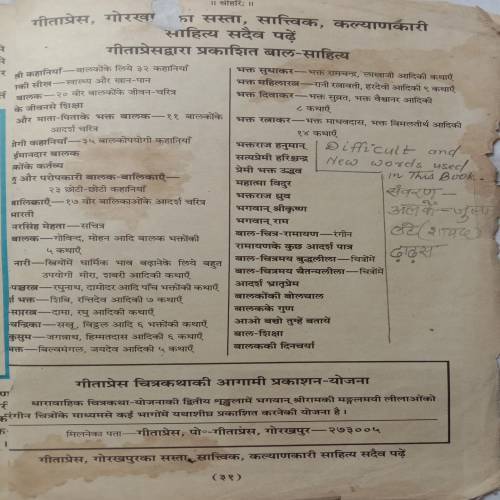 ॥ श्रीहरिः ॥
गीताप्रेस, गोरखपुर का सस्ता, सात्त्विक, कल्याणकारी
साहित्य सदैव पढ़ें
गीताप्रेसद्वारा प्रकाशित बाल-साहित्य
कहानियाँ—बालकोंके लिये ३२ कहानियाँ
सीख—स्वास्थ्य और खान-पान
बालक—२० वीर बालकोंके जीवन-चरित्र
के जीवनसे शिक्षा
और माता-पिताके भक्त बालक—११ बालकोंके
आदर्श चरित्र
कहानियाँ—३५ बालकोपयोगी कहानियाँ
ईमानदार बालक
कोंके कर्तव्य
और परोपकारी बालक-बालिकाएँ—
२३ छोटी-छोटी कहानियाँ
बालिकाएँ—१७ वीर बालिकाओंके आदर्श चरित्र
भारती
नरसिंह मेहता—सचित्र
बालक—गोविन्द, मोहन आदि बालक भक्तोंकी
५ कथाएँ
नारी—स्त्रियोंमें धार्मिक भाव बढ़ानेके लिये बहुत
उपयोगी मीरा, शबरी आदिकी कथाएँ
पञ्चरत्न—रघुनाथ, दामोदर आदि पाँच भक्तोंकी कथाएँ
भक्त—शिबि, रन्तिदेव आदिकी ७ कथाएँ
सप्तरत्न—दामा, रघु आदिकी कथाएँ
चन्द्रिका—सखू, विट्ठल आदि ६ भक्तोंकी कथाएँ
कुसुम—जगन्नाथ, हिम्मतदास आदिकी ६ कथाएँ
भक्त—बिल्वमंगल, जयदेव आदिकी ५ कथाएँ
भक्त सुधाकर—भक्त रामचन्द्र, लाखाजी आदिकी कथाएँ
भक्त महिलारत्न—रानी रत्नावती, हरदेवी आदिकी ९ कथाएँ
भक्त दिवाकर—भक्त सुव्रत, भक्त वैश्वानर आदिकी
८ कथाएँ
भक्त रत्नाकर—भक्त माधवदास, भक्त विमलतीर्थ आदिकी
१४ कथाएँ
भक्तराज हनुमान्
सत्यप्रेमी हरिश्चन्द्र
प्रेमी भक्त उद्धव
महात्मा विदुर
भक्तराज ध्रुव
भगवान् श्रीकृष्ण
भगवान् राम
बाल-चित्र-रामायण—रंगीन
रामायणके कुछ आदर्श पात्र
बाल-चित्रमय बुद्धलीला—चित्रोंमें
बाल-चित्रमय चैतन्यलीला—चित्रोंमें
आदर्श भ्रातृप्रेम
बालकोंकी बोलचाल
बालकके गुण
आओ बच्चो तुम्हें बतायें
बाल-शिक्षा
बालककी दिनचर्या
Difficult and
New words used
in This Book
संवरण-
अलकें-
लटें (शायद)
ढाढ़स
गीताप्रेस चित्रकथाकी आगामी प्रकाशन-योजना
धारावाहिक चित्रकथा-योजनाकी द्वितीय शृङ्खलामें भगवान् श्रीरामकी मङ्गलमयी लीलाओंको
रंगीन चित्रोंके माध्यमसे कई भागोंमें यथाशीघ्र प्रकाशित करनेकी योजना है।
मिलनेका पता—गीताप्रेस, पो०-गीताप्रेस, गोरखपुर—२७३००५
गीताप्रेस, गोरखपुरका सस्ता, सात्त्विक, कल्याणकारी साहित्य सदैव पढ़ें
(३१)